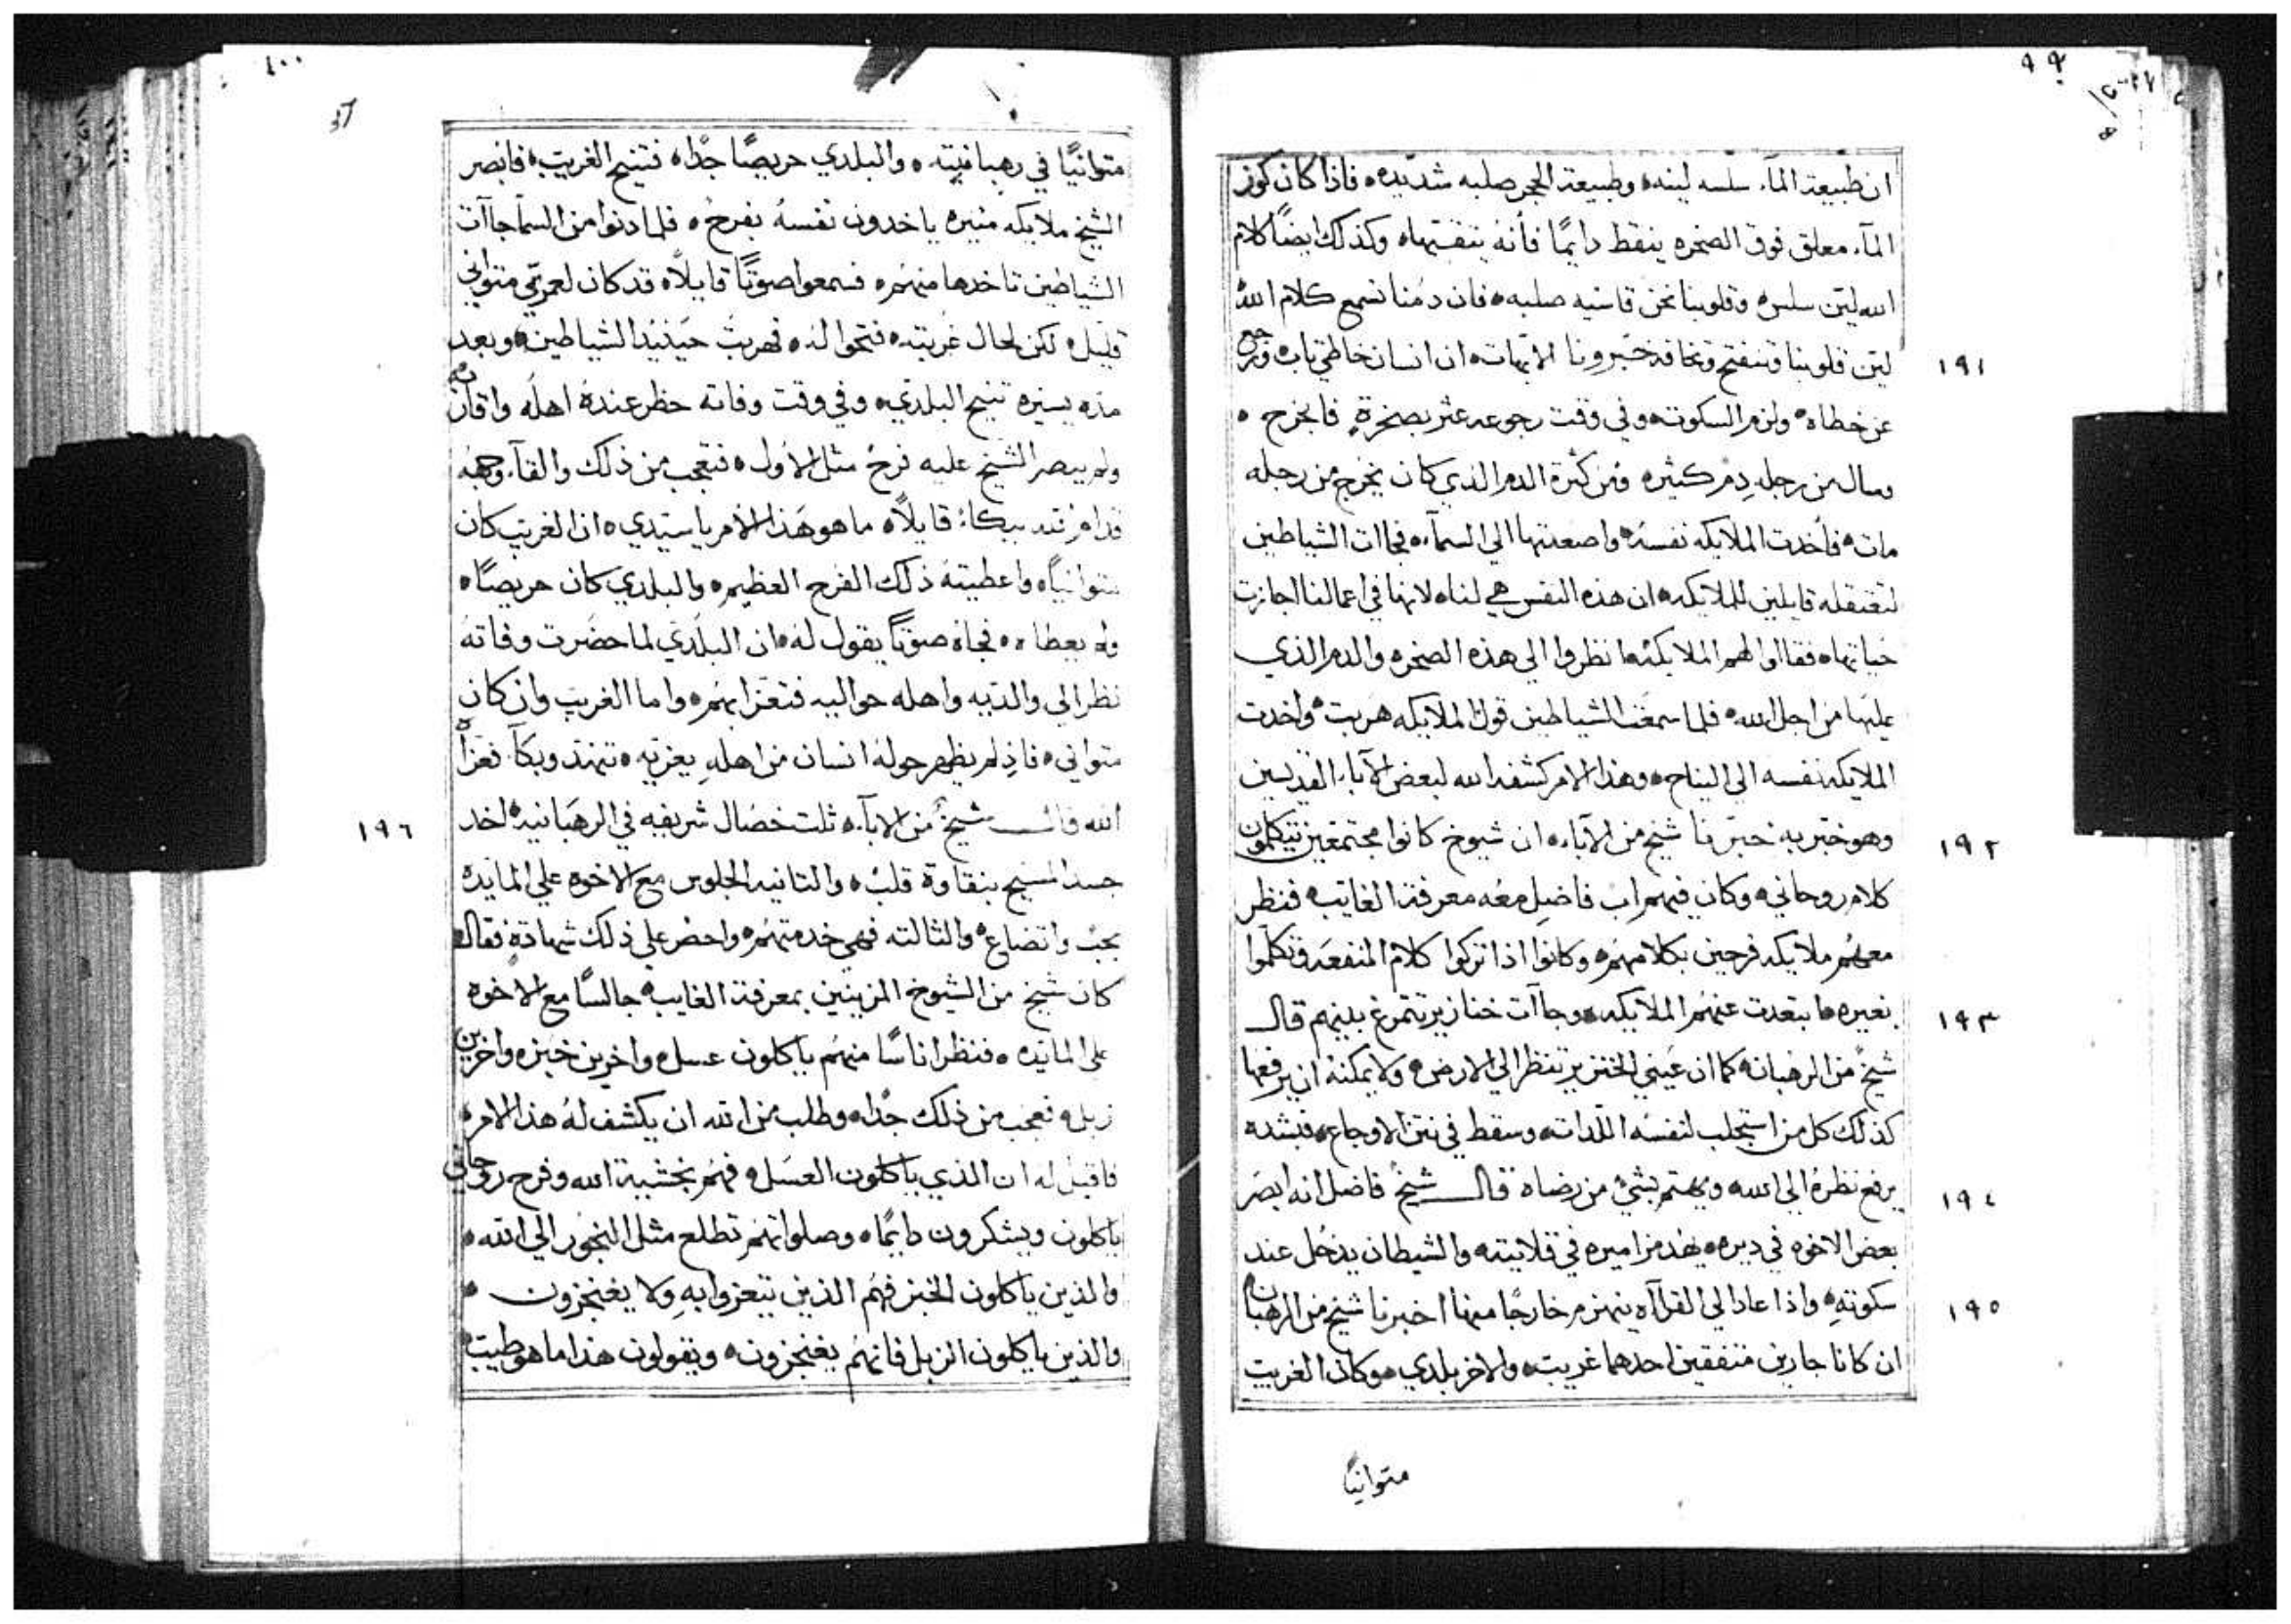 ٩٩
ان طبيعة المآء سلسه لينه ه وطبيعة الحجر صلبه شديده ه فاذا كان كوز
المآء معلق فوق الصخره ينقط دايمًا فأنه يتقبها ه وكذلك ايضًا كلام
الله ليّن سلس ه وقلوبنا نحن قاسيه صلبه ه فان دمنا نسمع كلام الله
١٩١
لين قلوبنا وتنفتح وتخافه خبّرونا الابهات ه ان انسان خاطي تاب ورجع
عن خطاه ه ولزم السكوت ه وفي وقت رجوعه عثر بصخرةٍ فانجرح ه
وسال من رجله دم كثير ه ومن كثرة الدم الذي كان يخرج من رجله
مات ه فأخدت الملايكه نفسه ه واصعدتها الي السمآء ه فجاات الشياطين
لتعتقله قايلين للملايكه ه ان هذه النفس هي لنا ه لانها في اعمالنا اجازت
حياتها ه فقالوا لهم الملايكه ه انظروا الي هذه الصخره والدم الذي
عليها من اجل الله ه فلما سمعت الشياطين قول الملايكه هربت ه واخدت
الملايكه نفسه الي النياح ه وهذا الامر كشفه الله لبعض الآباء القديسين
١٩٢
وهو خبّر به خبّرنا شيخ من الآباء ه ان شيوخ كانوا مجتمعين يتكلمون
كلام روحاني ه وكان فيهم اب فاضل معه معرفة الغايب ه فنظر
معهم ملايكه فرحين بكلامهم ه وكانوا اذا تركوا كلام المنفعه وتكلموا
١٩٣
بغيره ه ابتعدت عنهم الملايكه ه وجاآت خنازير تتمرغ بينهم قال
شيخ من الرهبان ه كما ان عيني الخنزير تنظر الي الارض ه ولا يمكنه ان يرفعها
كذلك كل من استجلب لنفسه اللدات ه وسقط في نتن الاوجاع ه فبشده
١٩٤
يرفع نظره الي الله ويهتم بشيٍ من رضاه قال شيخ فاضل انه ابصر
بعض الاخوه في ديره ه يهد مزاميره في قلايته ه والشيطان يدخل عند
١٩٥
سكوته ه واذا عاد الي القرآه ينهزم خارجًا منها اخبرنا شيخ من الرهبان
ان كانا جارين متفقين احدهما غريب ه والاخر بلدي ه وكان الغريب
متوانيًا
١٠٠
متوانيًا في رهبانيته ه والبلدي حريصًا جدًا ه فتنيح الغريب ه فابصر
الشيخ ملايكه منيره ياخدون نفسه بفرح ه فلما دنوا من السمآ جاآت
الشياطين تاخدها منهم ه فسمعوا صوتًا قايلاً ه قد كان لعمري متواني
قليل ه لكن لحال غربته ه فتحوا له ه فهربت حينيدٍ الشياطين ه وبعد
مده يسيره تنيح البلدي ه وفي وقت وفاته حظر عنده اهله واقاربه
ولم يبصر الشيخ عليه فرح مثل الاول ه فتعجب من ذلك والقآ وجهه
قدام الله ببكاء قايلاً ه ما هو هذا الامر يا سيدي ه ان الغريب كان
متوانيًا ه واعطيته ذلك الفرح العظيم ه والبلدي كان حريصًا ه
ولم يعطاه ه فجاه صوتًا يقول له ه ان البلدي لما حضرت وفاته
نظر الي والديه واهله حواليه فتعزا بهم ه واما الغريب وان كان
متواني ه فاذ لم يظهر حوله انسان من اهله يعزيه ه تنهد وبكآ فعزاه
١٩٦
الله قال شيخ من الابآء ه ثلت خصال شريفه في الرهبانيه ه اخد
جسد المسيح بنقاوة قلب ه والتانيه الجلوس مع الاخوه علي المايده
بحب واتضاع ه والثالته فهي خدمتهم ه واحضر علي ذلك شهادةٍ فقال ه
كان شيخ من الشيوخ المزينين بمعرفة الغايب ه جالسًا مع الاخوه
علي المايده ه فنظر اناسًا منهم ياكلون عسل ه واخرين خبز ه واخرين
زبل ه فعجب من ذلك جدًا ه وطلب من الله ان يكشف له هذا الامر ه
فاقيل له ان الذي ياكلون العسل ه فهم بخشية الله وفرح روحاني
ياكلون ويشكرون دايمًا ه وصلواتهم تطلع مثل البخور الي الله ه
والذين ياكلون الخبز فهم الذين يتعزوا به ولا يغنجزون ه
والذين ياكلون الزبل فانهم يغنجزون ه ويقولون هذا ما هو طيب ه